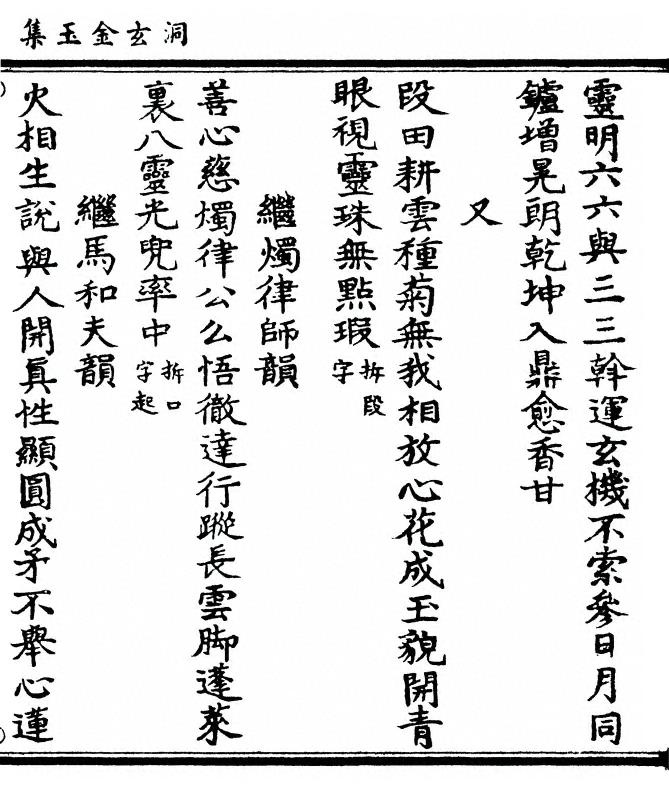 洞玄金玉集
靈明六六與三三斡運玄機不索參日月同
鑪增晃朗乾坤入鼎愈香甘
又
段田耕雲種菊無我相放心花成玉貌開青
眼視靈珠無點瑕拆段字
繼燭律師韻
善心慈燭律公么悟徹達行蹤長雲脚蓬萊
裏八靈光兜率中拆口字起
繼馬和夫韻
火相生說與人開眞性顯圓成矛不舉心蓮